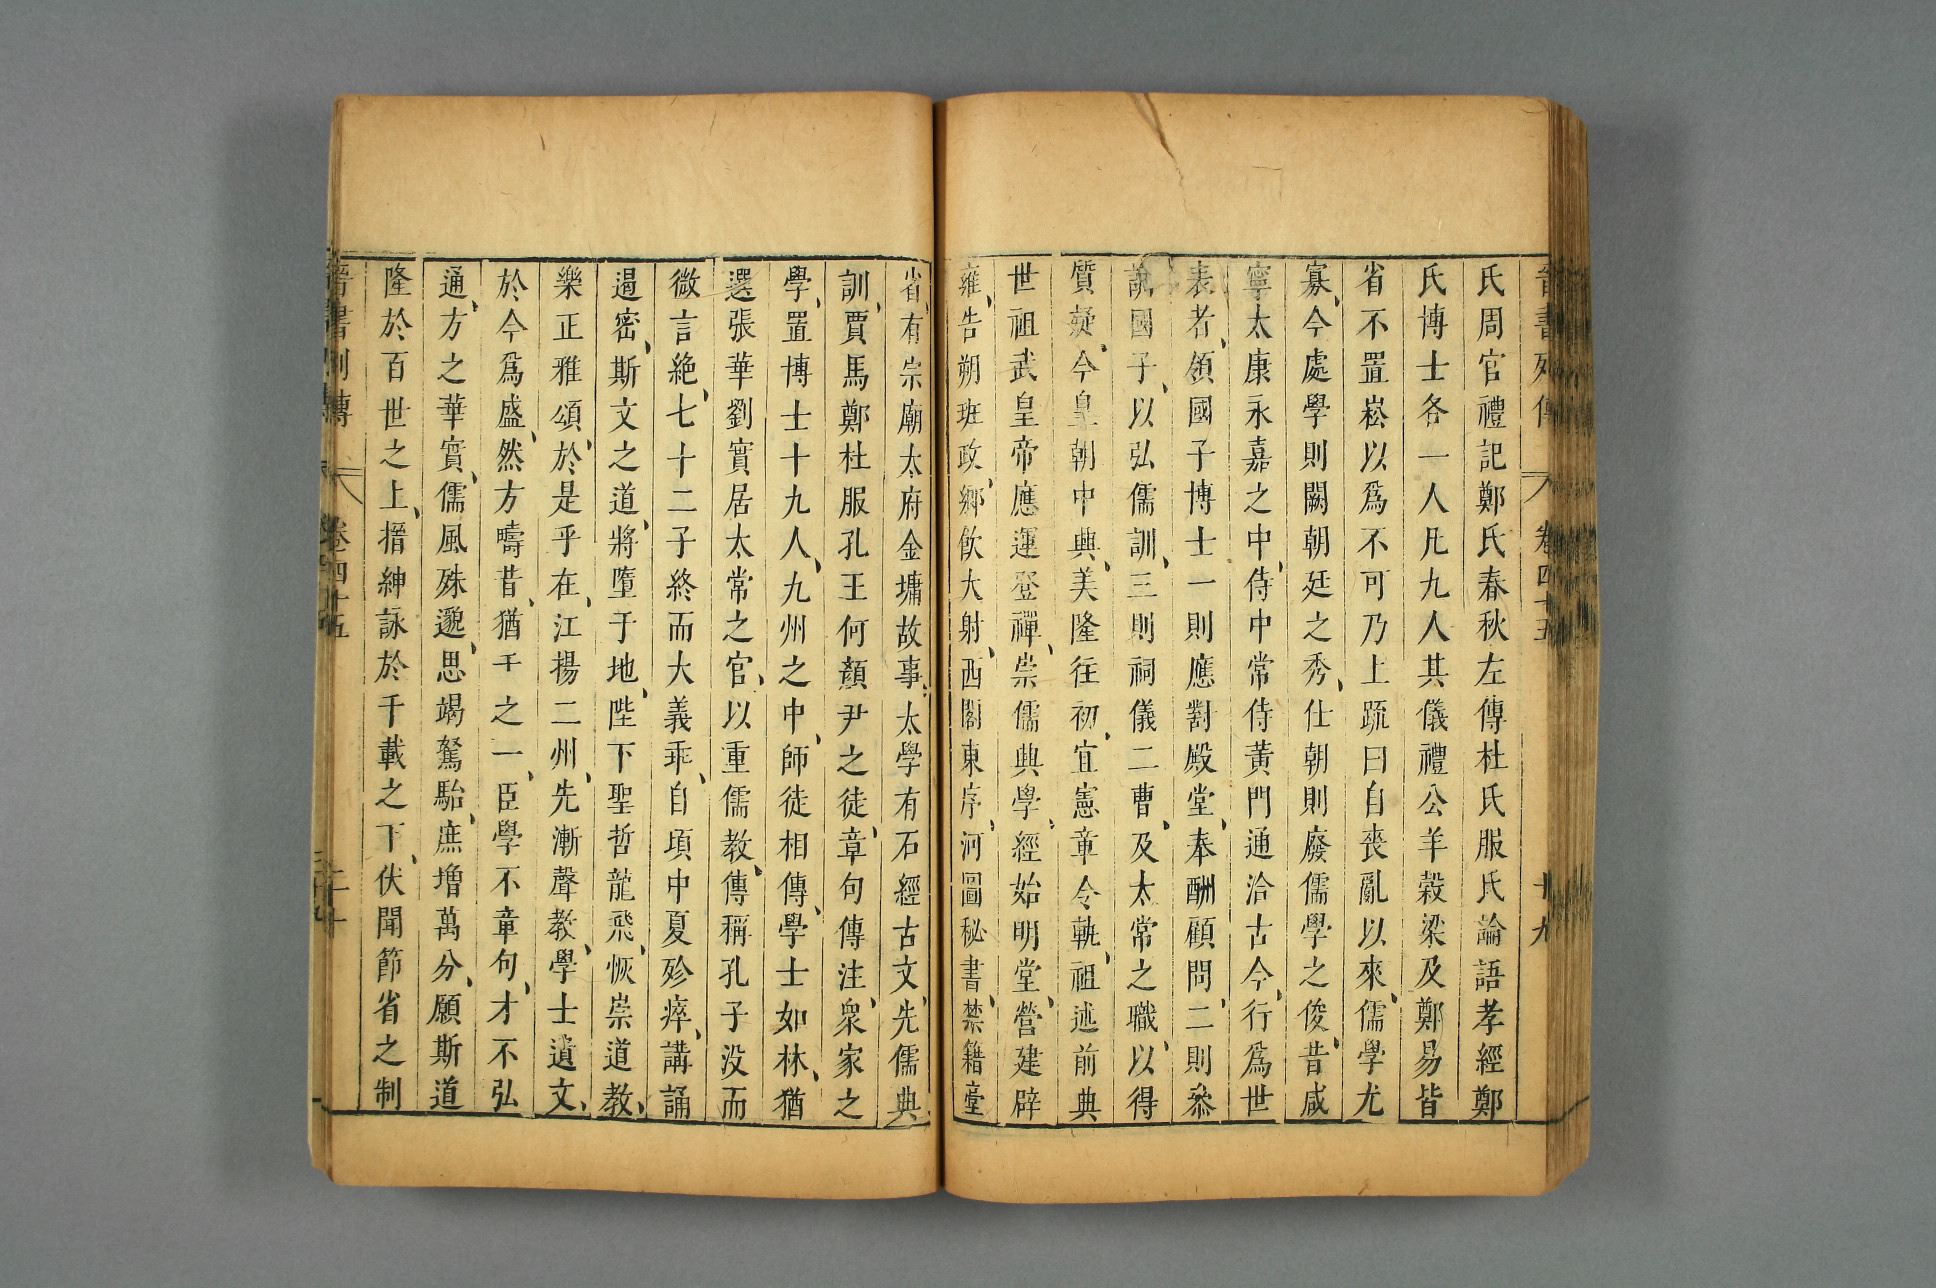 氏周官禮記鄭氏春秋左傳杜氏服氏論語孝經鄭
氏博士各一人凡九人其儀禮公羊穀梁及鄭易皆
省不置崧以爲不可乃上疏曰自喪亂以來儒學尤
寡今處學則闕朝廷之秀仕朝則廢儒學之俊昔咸
寧太康永嘉之中侍中常侍黃門通洽古今行爲世
表者領國子博士一則應對殿堂奉酬顧問二則參
訓國子以弘儒訓三則祠儀二曹及太常之職以得
質疑今皇朝中興美隆往初宜憲章令軌祖述前典
世祖武皇帝應運登禪崇儒興學經始明堂營建辟
雍告朔班政鄉飲大射西閣東序河圖秘書禁籍臺
省有宗廟太府金墉故事太學有石經古文先儒典
訓賈馬鄭杜服孔王何顏尹之徒章句傳注衆家之
學置博士十九人九州之中師徒相傳學士如林猶
選張華劉寔居太常之官以重儒教傳稱孔子沒而
微言絕七十二子終而大義乖自頃中夏殄瘁講誦
遏密斯文之道將墮于地陛下聖哲龍飛恢崇道教
樂正雅頌於是乎在江揚二州先漸聲教學士遺文
於今爲盛然方疇昔猶千之一臣學不章句才不弘
通方之華實儒風殊邈思竭駑駘庶增萬分願斯道
隆於百世之上搢紳詠於千載之下伏聞節省之制
晉書列傳 卷四十五